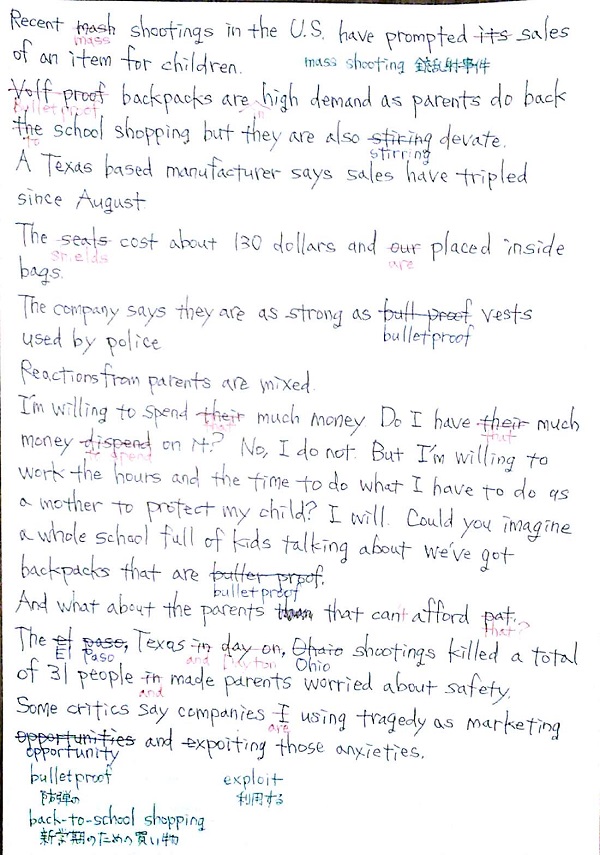 Recent mash shootings in the U.S. have prompted its sales
mass
of an item for children.
mass shooting 銃乱射事件
Voff proof backpacks are high demand as parents do back
bulletproof in
the school shopping but they are also stiring devate.
to stirring
A Texas based manufacturer says sales have tripled
since August
The seals cost about 130 dollars and our placed inside
shields are
bags.
The company says they are as strong as bull proof vests
bulletproof
used by police
Reactions from parents are mixed.
I'm willing to spend their much money Do I have their much
that that
money dispend on it? No, I do not. But I'm willing to
to spend
work the hours and the time to do what I have to do as
a mother to protect my child? I will. Could you imagine
a whole school full of kids talking about we've got
backpacks that are buller proof.
bulletproof
And what about the parents than that can't afford pat.
that?
The el paso, Texas in day on, Ohaio shootings killed a total
El Paso and Dayton Ohio
of 31 people in made parents worried about safety.
and
Some critics say companies I using tragedy as marketing
are
opportunities and expoiting those anxieties.
opportunity
bulletproof exploit
防弾の 利用する
back-to-school shopping
新学期のための買い物